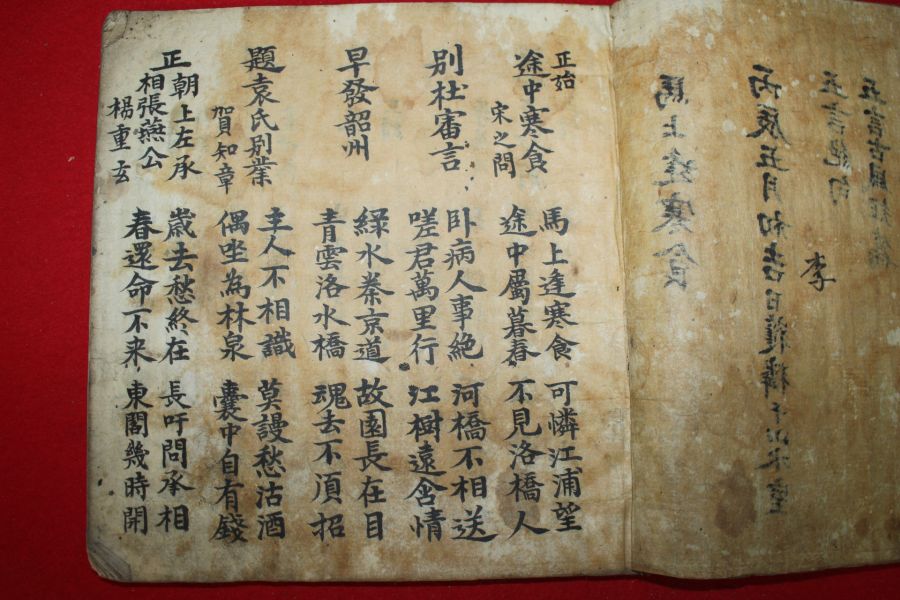 五言古風短篇
五言絶句
李
丙辰五月初吉日
馬上逢寒食
正始
途中寒食
宋之問
馬上逢寒食 可憐江浦望
途中屬暮春 不見洛橋人
別杜審言
卧病人事絶 河橋不相送
嗟君萬里行 江樹遠含情
早發韶州
綠水秦京道 故園長在目
青雲洛水橋 魂去不湏招
題袁氏別業
賀知章
主人不相識 莫謾愁沽酒
偶坐為林泉 囊中自有錢
正朝上左承
相張燕公
楊重玄
歲去愁終在 長吁問承相
春還命不来 東閣幾時開